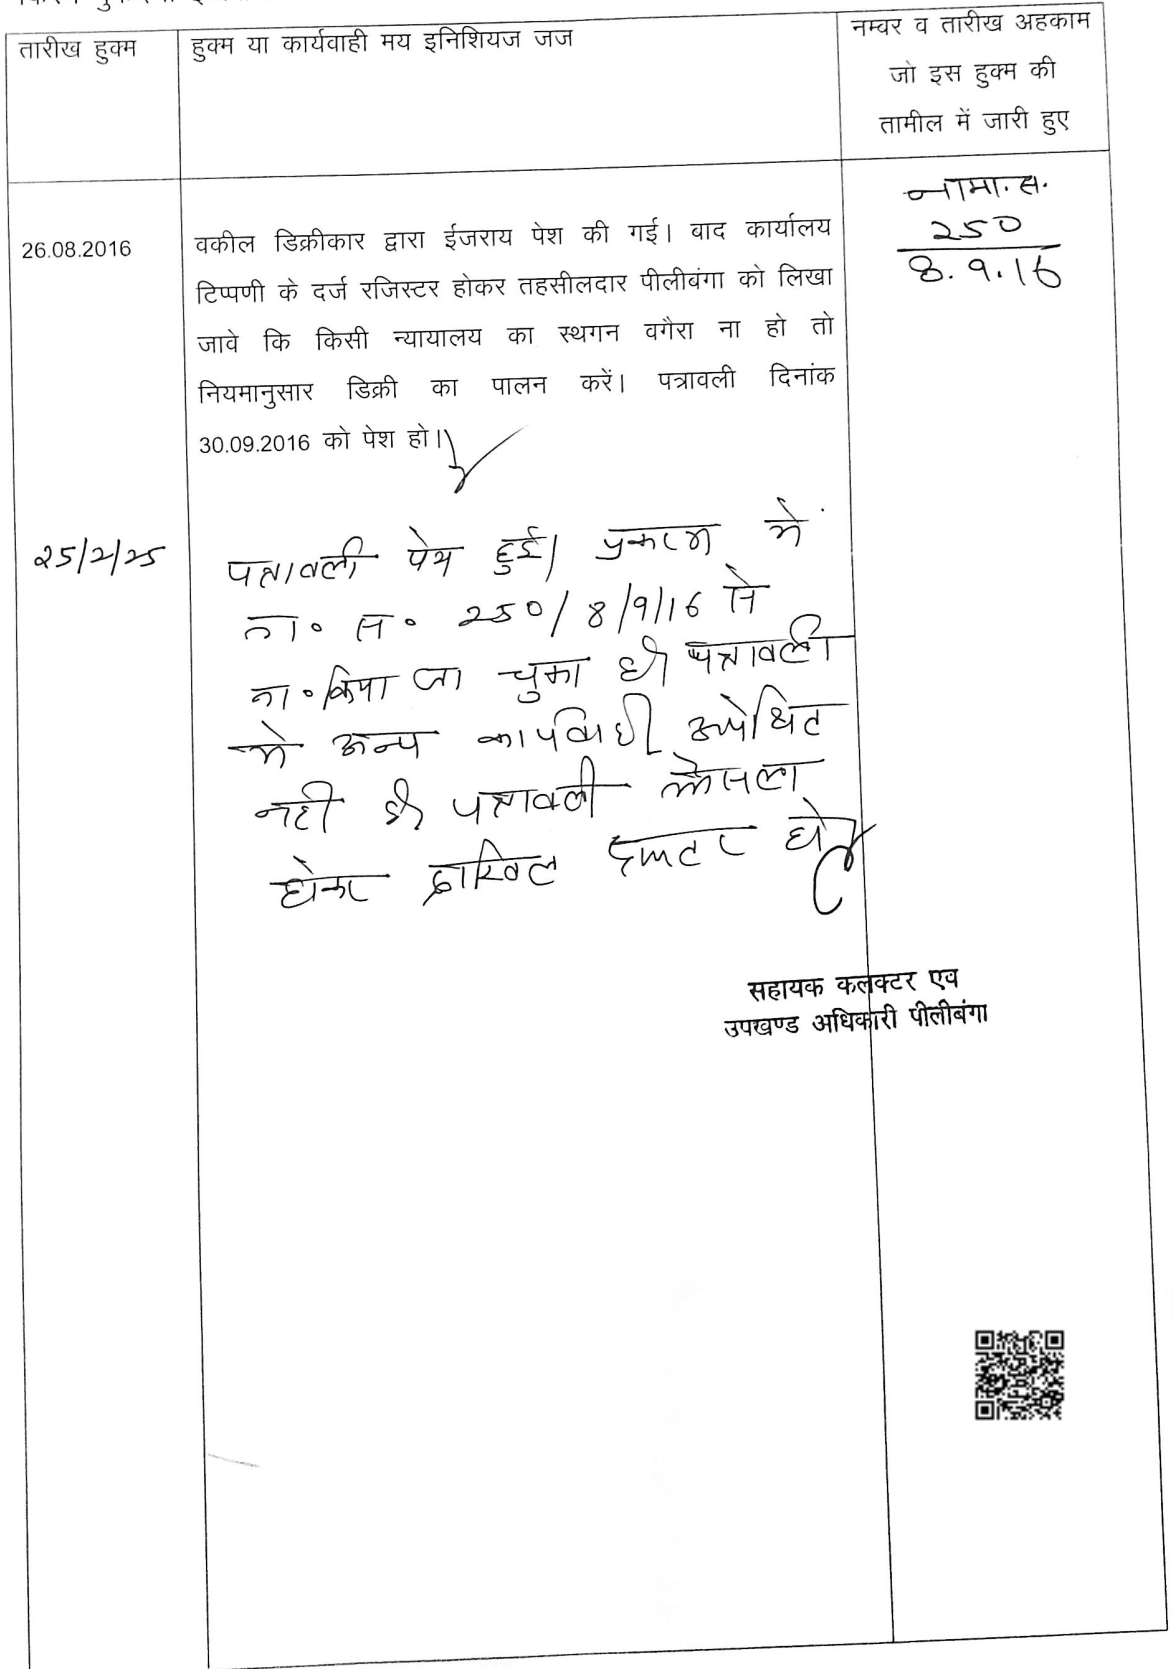 तारीख हुक्म
हुक्म या कार्यवाही मय इनिशियज जज
नम्वर व तारीख अहकाम
जो इस हुक्म की
तामील में जारी हुए
26.08.2016
वकील डिक्रीकार द्वारा ईजराय पेश की गई। वाद कार्यालय
टिप्पणी के दर्ज रजिस्टर होकर तहसीलदार पीलीबंगा को लिखा
जावे कि किसी न्यायालय का स्थगन वगैरा ना हो तो
नियमानुसार डिक्री का पालन करें। पत्रावली दिनांक
30.09.2016 को पेश हो।
नामा.स.
२५०
8.9.16
२5/2/२5
पत्रावली पेश हुई। प्रकरण में
ना॰ स॰ २५०/8/9/16 से
ना॰ किया जा चुका है। पत्रावली
में अन्य कार्यवाही अपेक्षित
नही है। पत्रावली फैसला
होकर दाखिल दफ्तर हो
सहायक कलक्टर एव
उपखण्ड अधिकारी पीलीबंगा